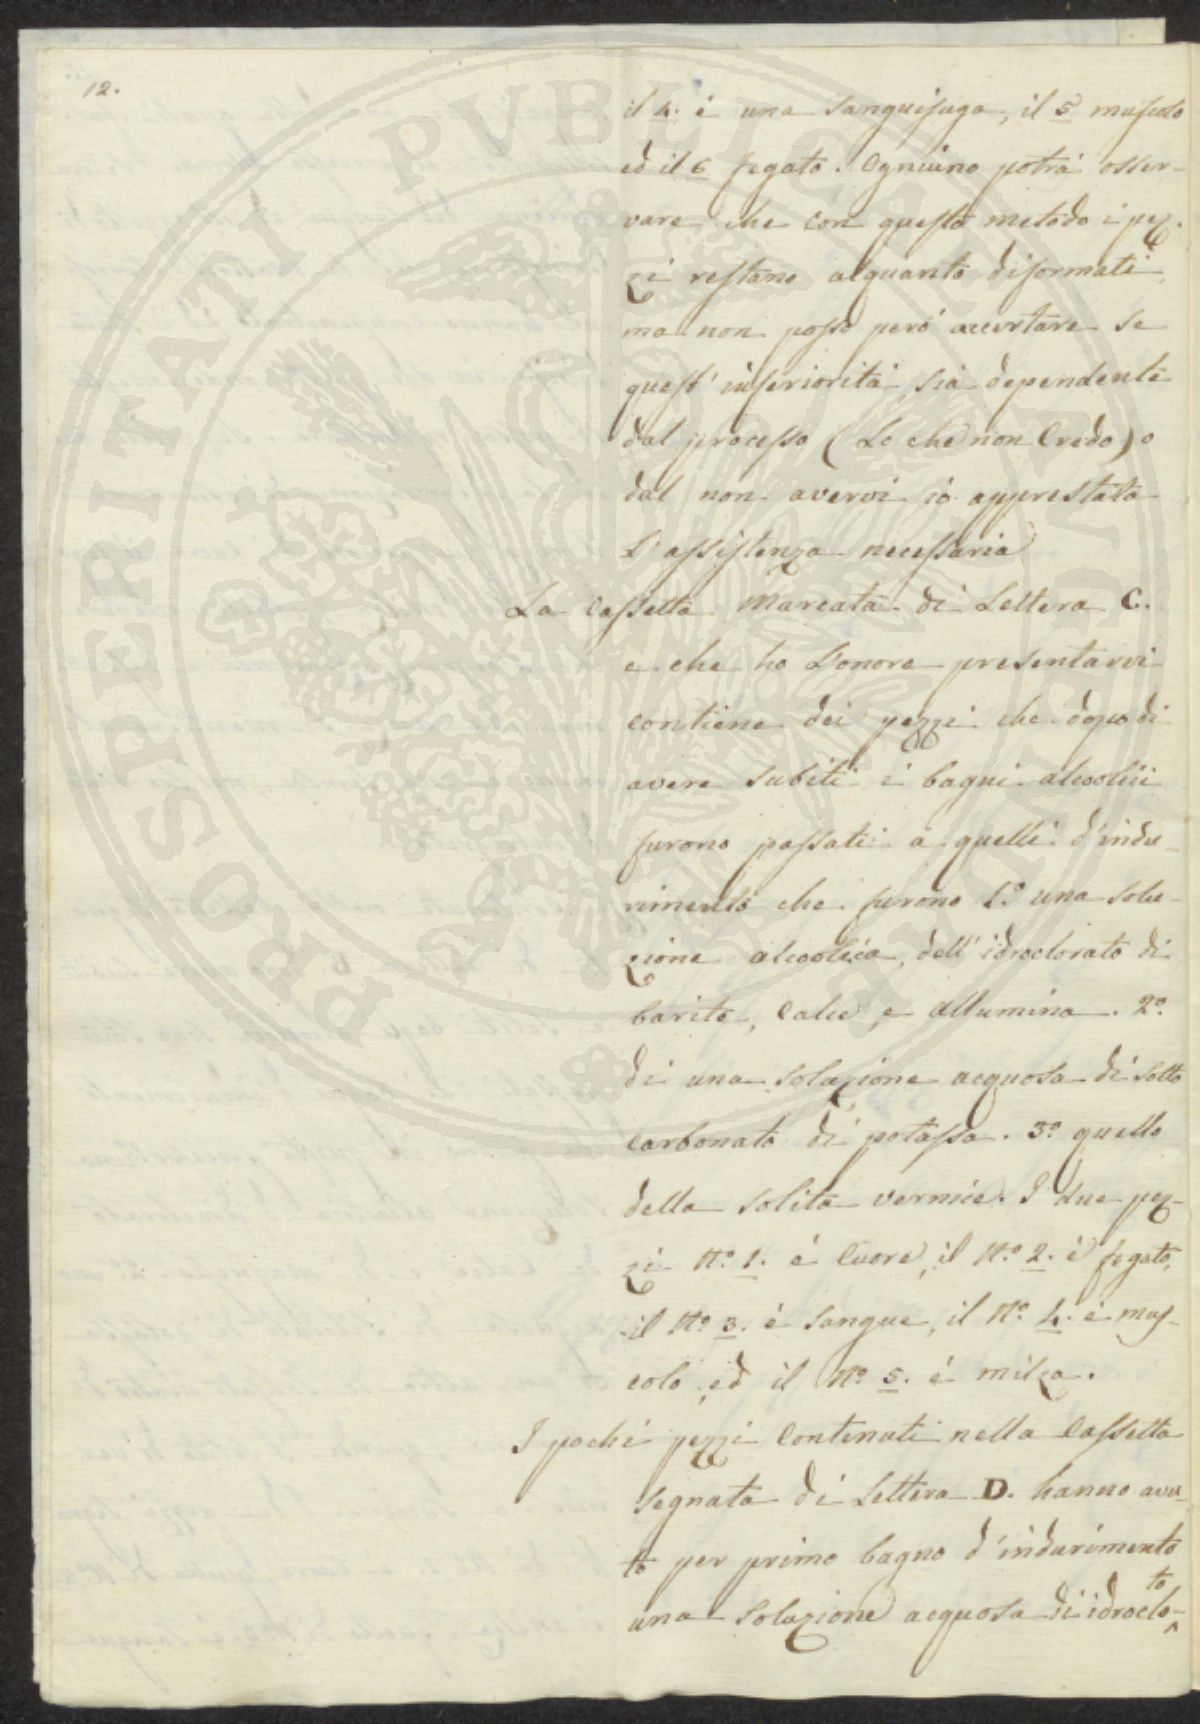 12.
il 4. è una Sanguisuga, il 5 muscolo
ed il 6 fegato. Ogniuno potrà osser-
vare che con questo metodo i pez-
zi restano alquanto disformati,
ma non posso però accertare se
quest'inferiorità sia dependente
dal processo (Lo che non Credo) o
dal non avervi io apprestata
L'assistenza necessaria
La Cassetta Marcata di Lettera C.
e che ho L'onore presentarvi
contiene dei pezzi che dopo di
avere Subiti i bagni alcoolici
furono passati a quelli d'indu-
rimento che furono 1.º una solu-
zione alcoolica dell'idroclorato di
barite, Calce, e Allumina. 2º.
di una soluzione acquosa di sotto
carbonato di potassa. 3.º quello
della solita vernice. I due pez-
zi Nº. 1. è Cuore, il Nº. 2. è fegato,
il Nº 3. è Sangue, il Nº. 4. è mus-
colo, ed il Nº 5. è milza.
I pochi pezzi Contenuti nella Cassetta
segnata di Lettera D. hanno avu-
to per primo bagno d'indurimento
una Soluzione acquosa di idroclo-
to
PROSPERITATI PVBLICAE